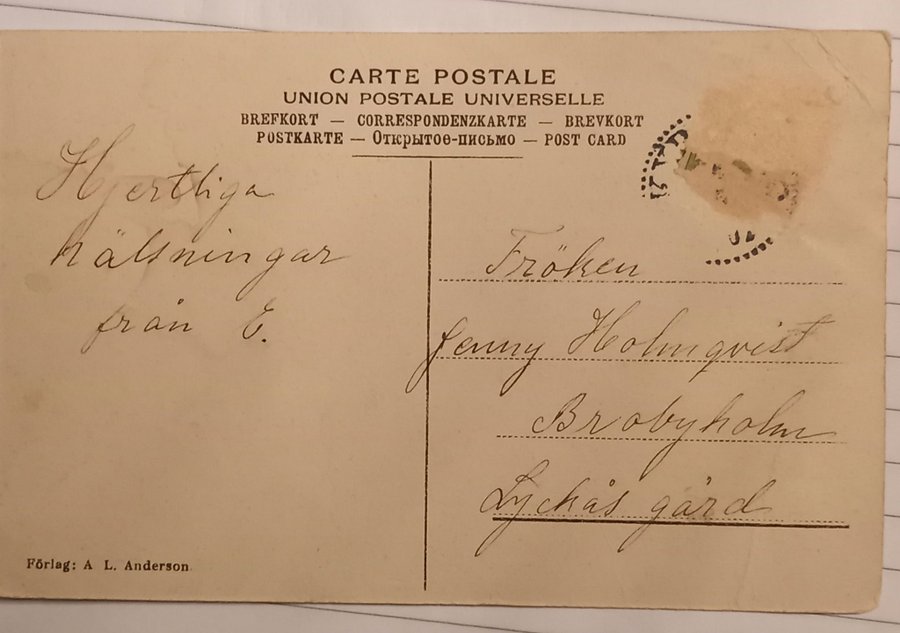 CARTE POSTALE
UNION POSTALE UNIVERSELLE
BREFKORT — CORRESPONDENZKARTE — BREVKORT
POSTKARTE — Открытое-письмо — POST CARD
Hjertliga
hälsningar
från E.
Fröken
Jenny Holmqvist
Brobyholm
Lyckås gård
Förlag: A L. Anderson